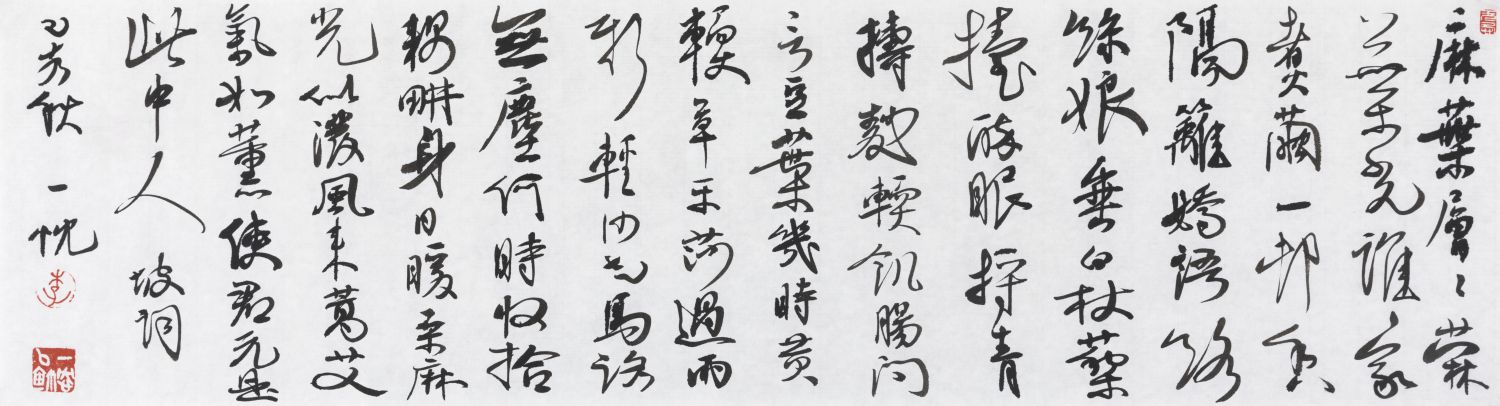 麻葉層〻檾
葉光誰家
煮繭一邨香
隔籬嬌語絡
絲娘垂白杖藜
擡醉眼捋青
擣麨輭飢腸問
言豆葉幾時黄
輭草平莎過雨
新輕沙走馬路
無塵何時收拾
耦畊身日暖桑麻
光似潑風來蒿艾
氣如薰使君元是
此中人 坡詞
己亥秋 一忱
李